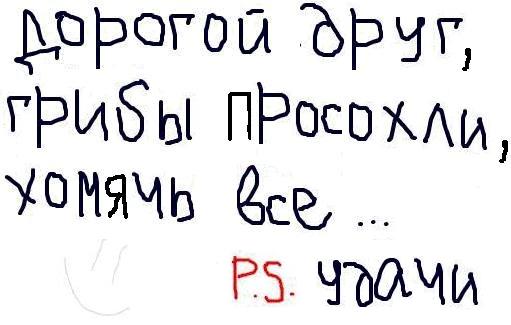 дорогой друг,
грибы просохли,
хомячь все ...
P.S. удачи